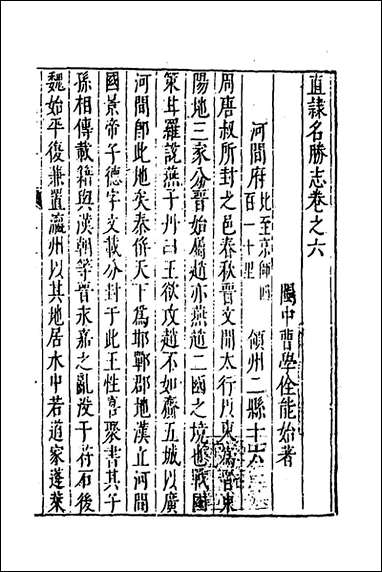 直隷名勝志卷之六
閩中曹學佺能始著
河間府北至京師四百一十里 領州二縣十六
周唐叔所封之邑春秋晉文開太行以東為晉東
陽地三家分晉始屬趙亦燕趙二國之境也戰國
策甘羅說燕子丹曰王欲攻趙不如齎五城以廣
河間即此地矣秦併天下為邯鄲郡地漢立河間
國景帝子德字文載分封于此王性喜聚書其子
孫相傳載籍與漢朝等晉永嘉之亂沒于苻石後
魏始平復兼置瀛州以其地居水中若道家蓬萊